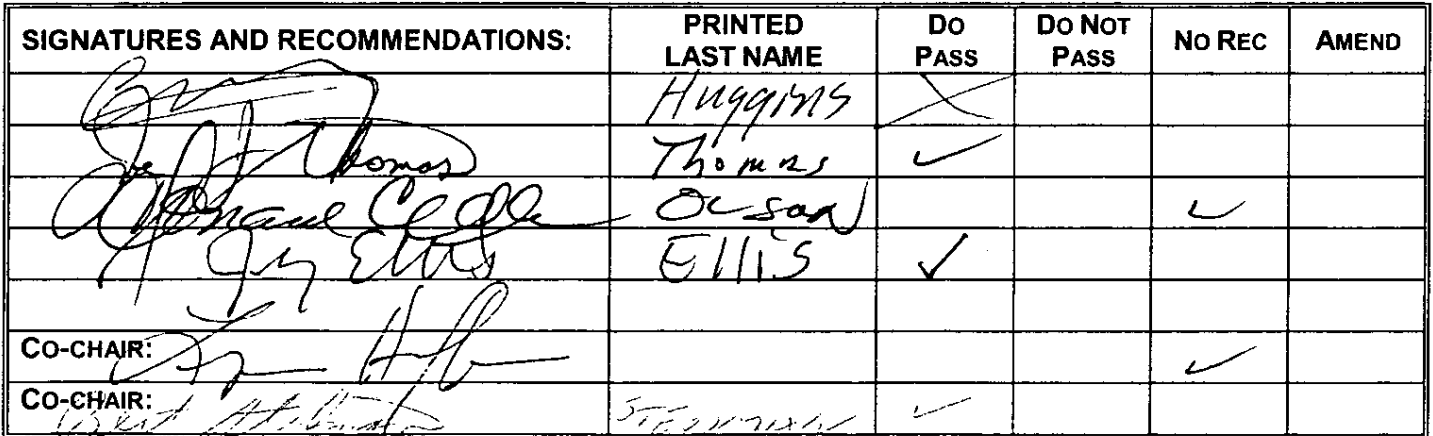 SIGNATURES AND RECOMMENDATIONS: PRINTED LAST NAME DO PASS DO NOT PASS NO REC AMEND
Huggins
Thomas Thomas ✓
Olson ✓
Ellis Ellis ✓
CO-CHAIR: ✓
CO-CHAIR: Bert Stedman Stedman ✓